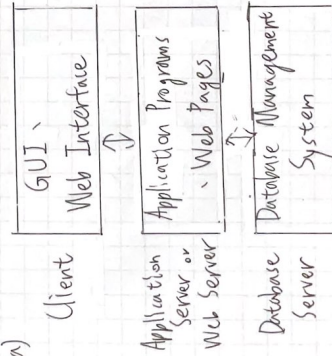 a)
Client
GUI、
Web Interface
Application
Server or
Web Server
Application Programs
、Web Pages
Database
Server
Database Management
System